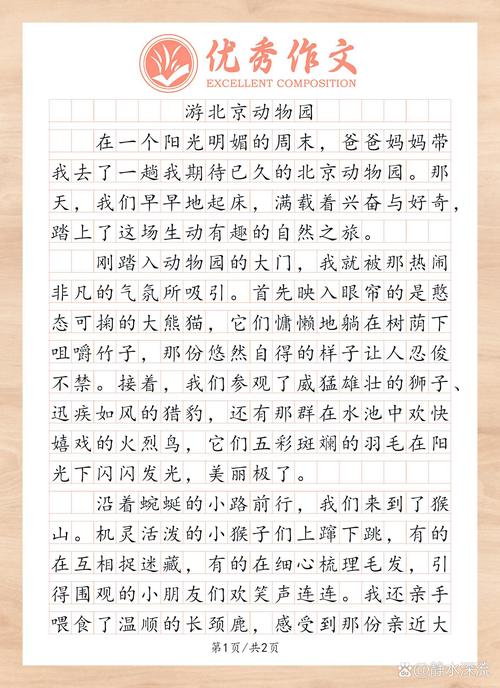 优秀作文
EXCELLENT COMPOSITION
游北京动物园
在一个阳光明媚的周末，爸爸妈妈带
我去了一趟我期待已久的北京动物园。那
天，我们早早地起床，满载着兴奋与好奇，
踏上了这场生动有趣的自然之旅。
刚踏入动物园的大门，我就被那热闹
非凡的气氛所吸引。首先映入眼帘的是憨
态可掬的大熊猫，它们慵懒地躺在树荫下
咀嚼竹子，那份悠然自得的样子让人忍俊
不禁。接着，我们参观了威猛雄壮的狮子、
迅疾如风的猎豹，还有那群在水池中欢快
嬉戏的火烈鸟，它们五彩斑斓的羽毛在阳
光下闪闪发光，美丽极了。
沿着蜿蜒的小路前行，我们来到了猴
山。机灵活泼的小猴子们上蹿下跳，有的
在互相捉迷藏，有的在细心梳理毛发，引
得围观的小朋友们欢笑声连连。我还亲手
喂食了温顺的长颈鹿，感受到那份亲近大
第1页/共2页
@静水深流